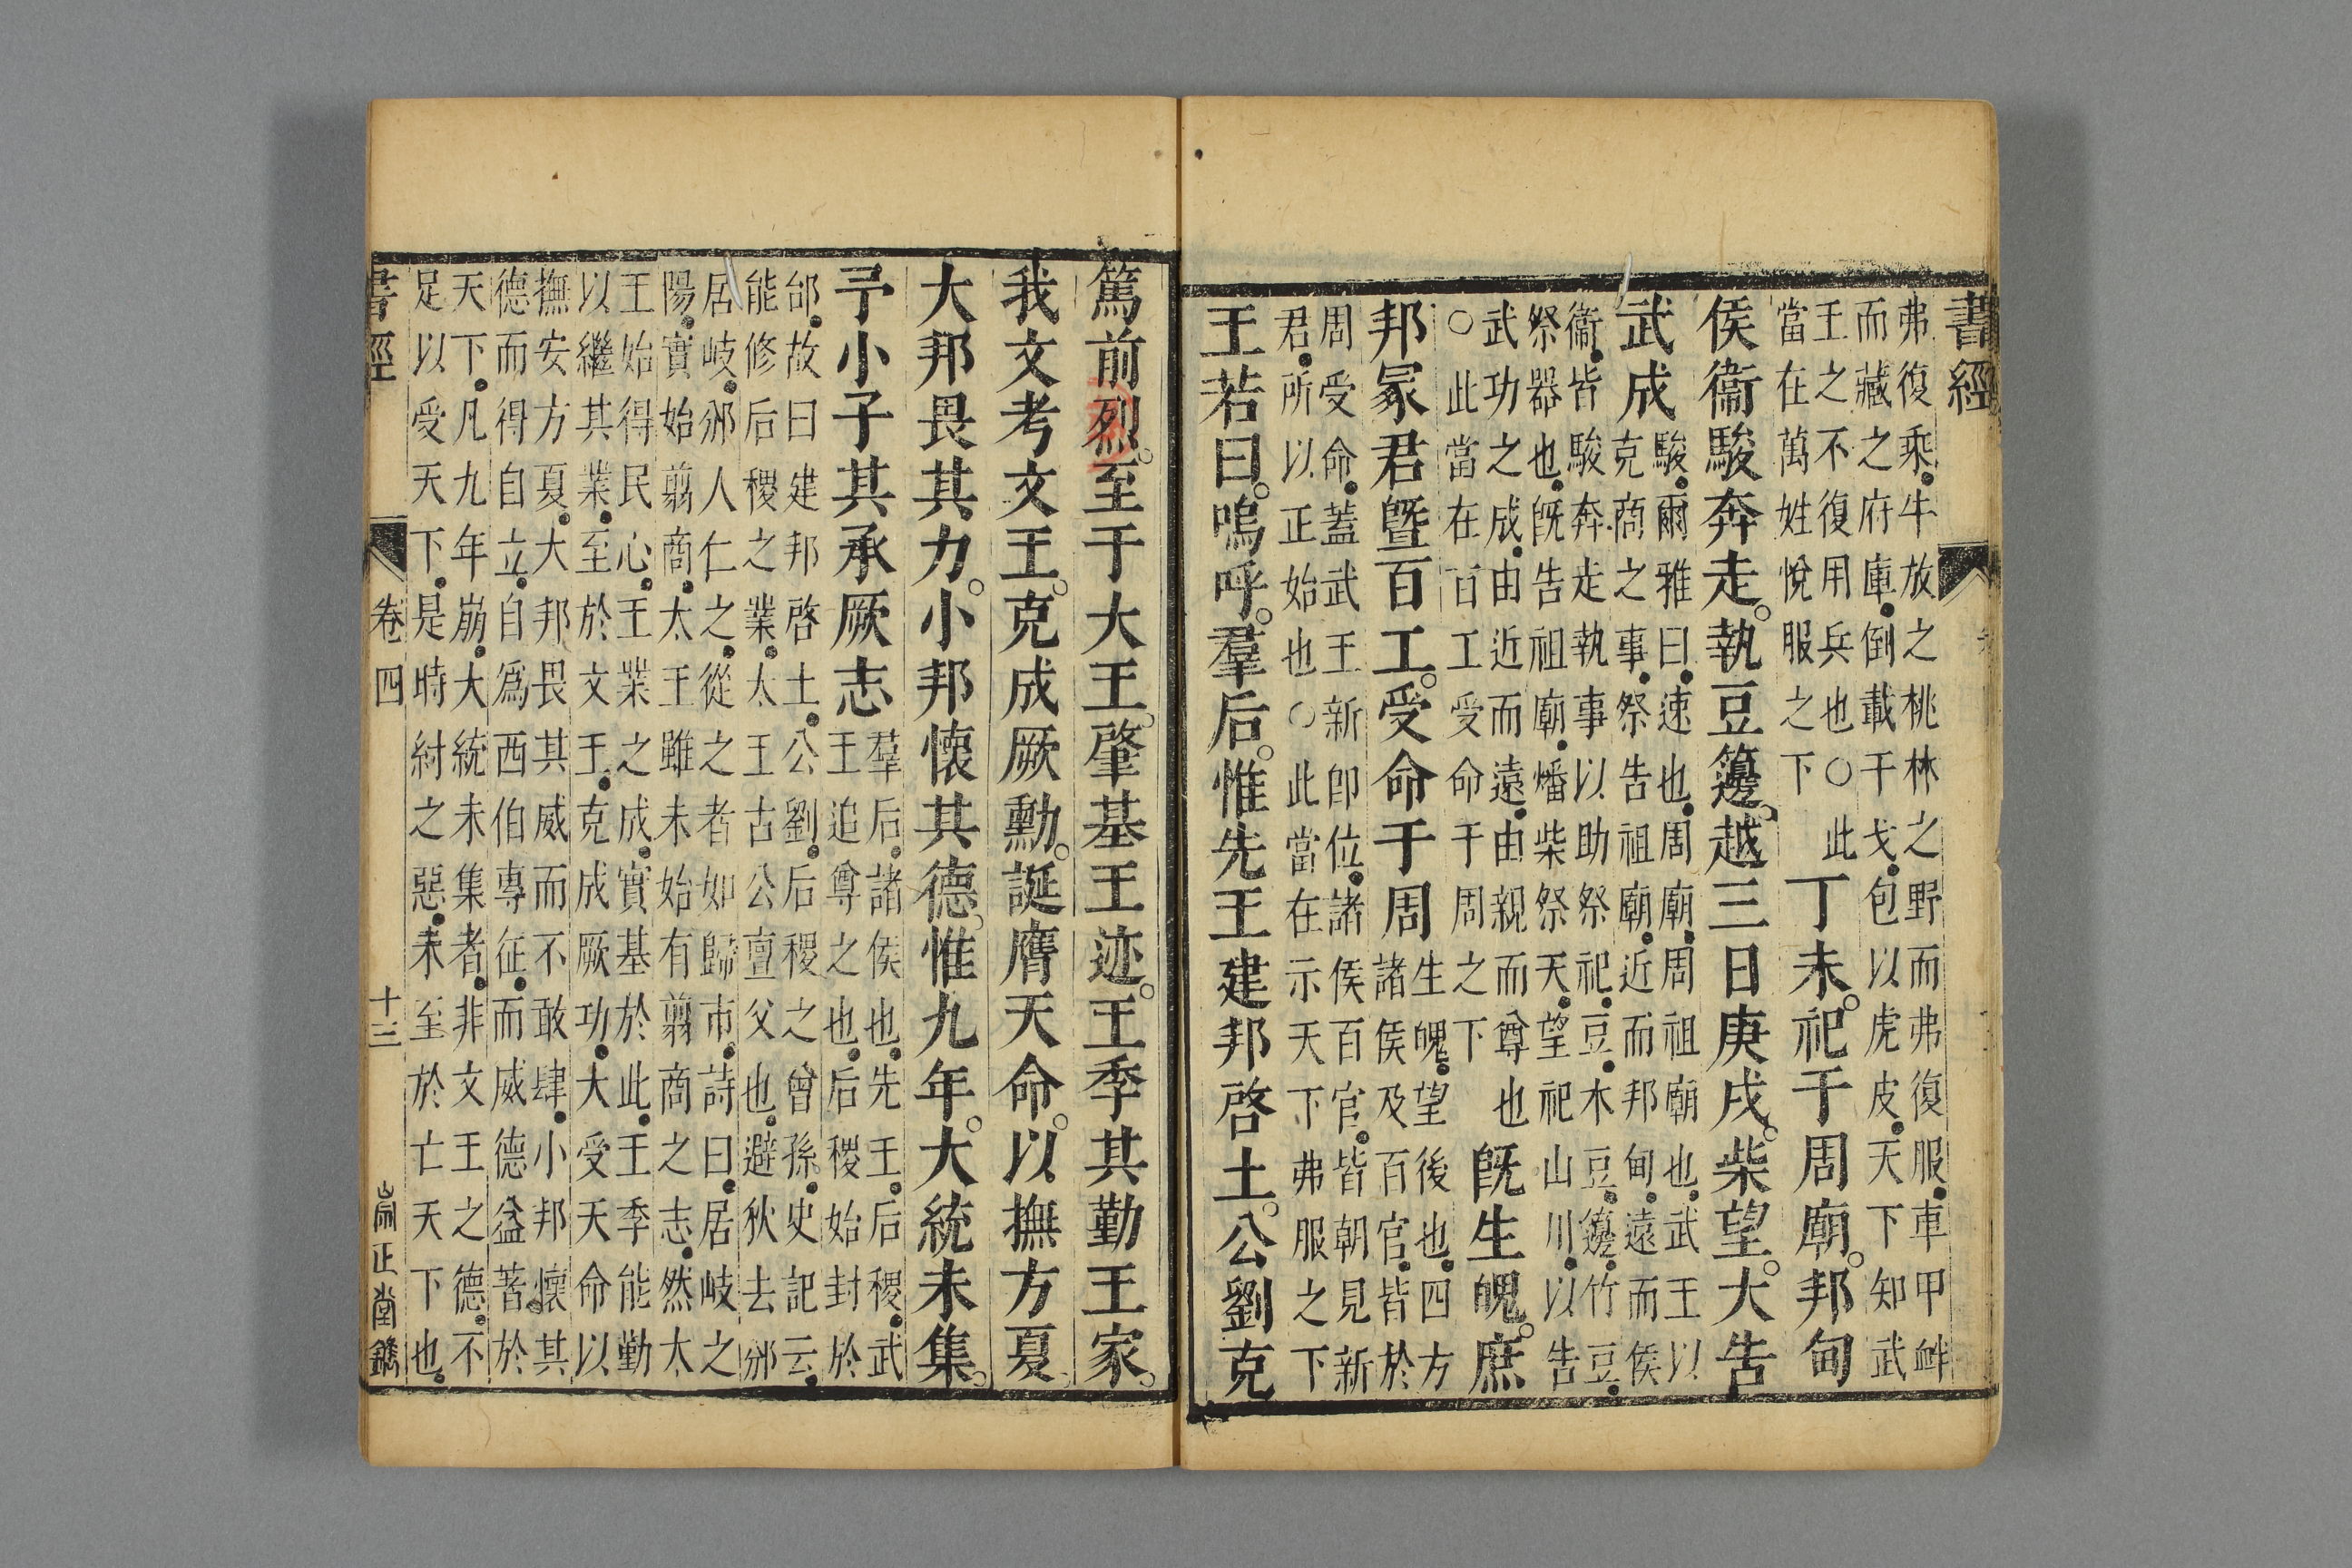 書經
弗復乘。牛放之桃林之野而弗復服。車甲衅
而藏之府庫。倒載干戈。包以虎皮。天下知武
王之不復用兵也○此
當在萬姓悅服之下
丁未。祀于周廟。邦甸
侯衞駿奔走。執豆籩。越三日庚戌。柴望。大告
武成
駿。爾雅曰。速也。周廟。周祖廟也。武王以
克商之事。祭告祖廟。近而邦甸。遠而侯
衞。皆駿奔走執事以助祭祀。豆。木豆。籩。竹豆。
祭器也。旣告祖廟。燔柴祭天。望祀山川。以告
武功之成。由近而遠。由親而尊也
○此當在百工受命于周之下
旣生魄。庶
邦冢君曁百工。受命于周
生魄。望後也。四方
諸侯及百官。皆於
周受命。蓋武王新卽位。諸侯百官。皆朝見新
君。所以正始也○此當在示天下弗服之下
王若曰。嗚呼。羣后。惟先王建邦啓土。公劉克
篤前烈。至于大王。肇基王迹。王季其勤王家。
我文考文王。克成厥勳。誕膺天命。以撫方夏。
大邦畏其力。小邦懷其德。惟九年。大統未集。
予小子其承厥志
羣后。諸侯也。先王。后稷。武
王追尊之也。后稷始封於
邰。故曰建邦啓土。公劉。后稷之曾孫。史記云。
能修后稷之業。太王古公亶父也。避狄去邠
居岐。邠人仁之。從之者如歸市。詩曰。居岐之
陽。實始翦商。太王雖未始有翦商之志。然太
王始得民心。王業之成。實基於此。王季能勤
以繼其業。至於文王。克成厥功。大受天命。以
撫安方夏。大邦畏其威而不敢肆。小邦懷其
德而得自立。自爲西伯專征。而威德益著於
天下。凡九年崩。大統未集者。非文王之德。不
足以受天下。是時紂之惡。未至於亡天下也。
書經 卷四 十三 崇正堂鐫